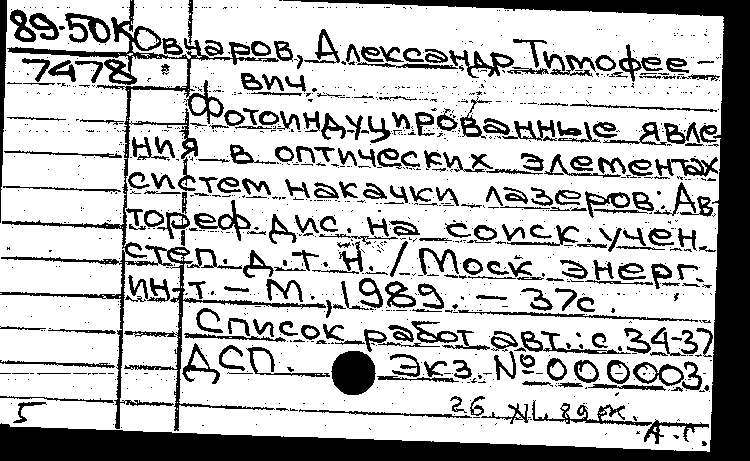 89-50К
7478
Овчаров, Александр Тимофее-
вич.
Фотоиндуцированные явле
ния в оптических элементах
систем накачки лазеров: Ав
тореф. дис. на соиск. учен.
степ. д.т.н. / Моск. энерг.
ин-т. – М., 1989. – 37с.
Список работ авт.: с.34-37
ДСП. Экз. № 000003.
26. XII. 89 ек.
5
А.С.